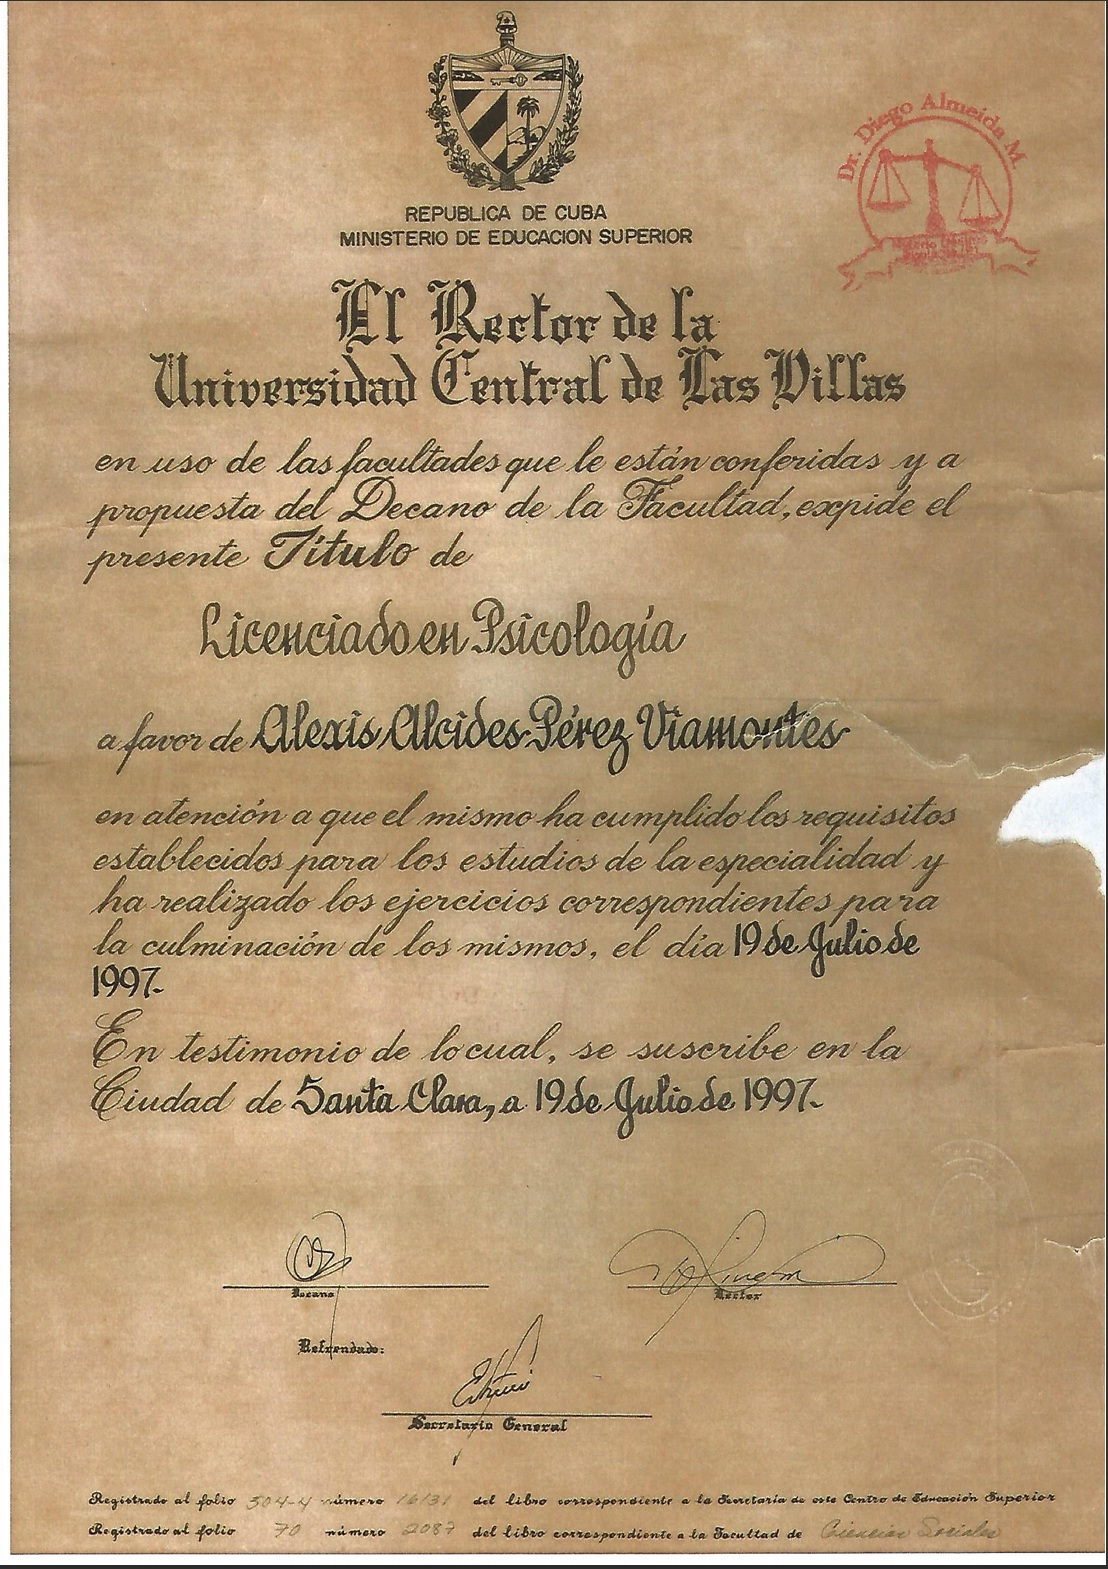 REPUBLICA DE CUBA
MINISTERIO DE EDUCACION SUPERIOR
Dr. Diego Almeida M.
El Rector de la
Universidad Central de Las Villas
en uso de las facultades que le están conferidas y a
propuesta del Decano de la Facultad, expide el
presente Título de
Licenciado en Psicología
a favor de Alexis Alcides Pérez Viamontes
en atención a que el mismo ha cumplido los requisitos
establecidos para los estudios de la especialidad y
ha realizado los ejercicios correspondientes para
la culminación de los mismos, el día 19 de Julio de
1997.
En testimonio de lo cual, se suscribe en la
Ciudad de Santa Clara, a 19 de Julio de 1997.
Decano
Rector
Refrendado:
Secretario General
Registrado al folio 504-4 número 16131 del libro correspondiente a la Secretaría de este Centro de Educación Superior
Registrado al folio 70 número 2087 del libro correspondiente a la Facultad de Ciencias Sociales